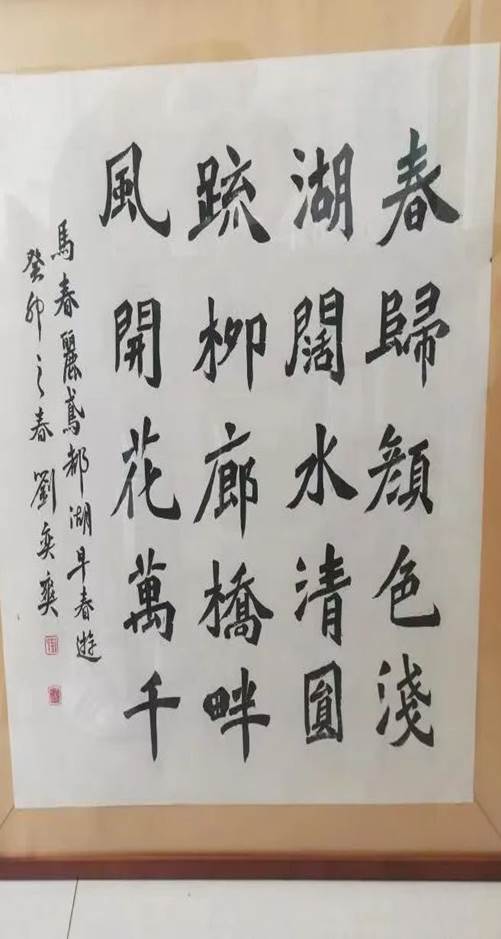 春歸顏色淺
湖闊水清圓
疏柳廊橋畔
風開花萬千
馬春麗鳶都湖早春遊
癸卯之春劉奕奕